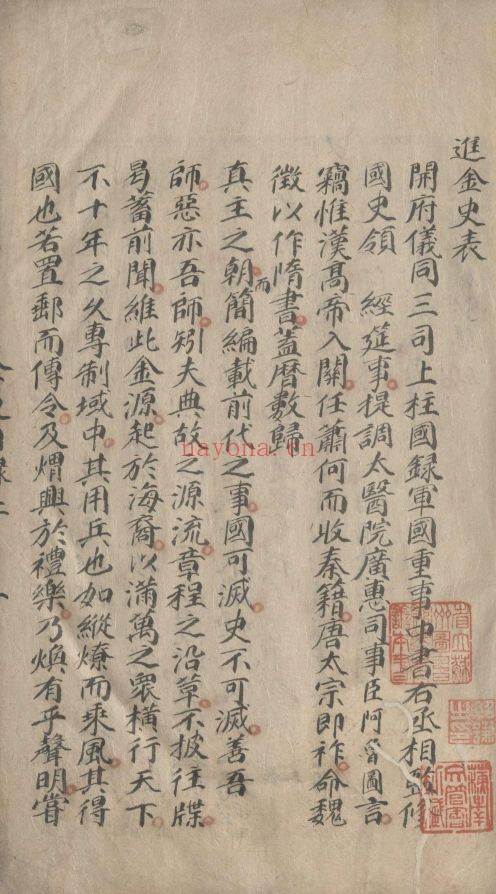 進金史表
開府儀同三司上柱國録軍國重事中書右丞相監修
國史領 經筵事提調太醫院廣惠司事臣阿魯圖言
竊惟漢髙帝入關任蕭何而收秦籍唐太宗即祚命魏
徵以作隋書蓋曆數歸
真主之朝而簡編載前代之事國可滅史不可滅善吾
師惡亦吾師矧夫典故之源流章程之沿革不披往牒
曷蓄前聞維此金源起於海裔以滿萬之眾橫行天下
不十年之久專制域中其用兵也如縱燎而乘風其得
國也若置郵而傳令及煟興於禮樂乃煥有乎聲明嘗
hayona.cn